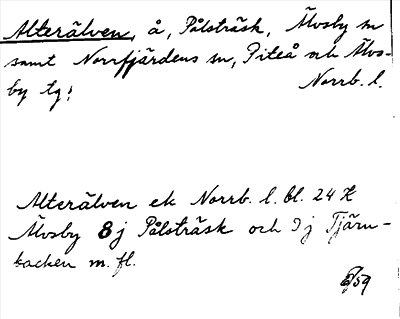 Alterälven, å, Pålsträsk, Älvsby sn
samt Norrfjärdens sn, Piteå och Älvs-
by tg;
Norrb. l.
Alterälven ek Norrb. l. bl. 24 K
Älvsby 8 j Pålsträsk och 9 j Tjärn-
backen m. fl.
6/59